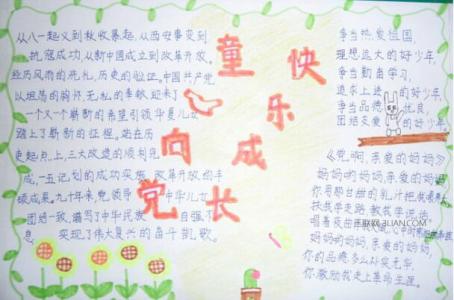 从八一起义到秋收暴起,从西安事变到
抗寇成功,从新中国成立到改革开放。
经历风雨的洗礼,历史的验证。中国共产党
以坦荡的胸怀,无私的奉献,迎来了
一个又一个崭新的希望引领华夏儿女
踏上了崭新的征程。站在历
史起点,上,三大改造的顺利完
成,一五记划的成功实施,改革开放的丰
硕成果。九十年来,党领导 中华儿女
团结一致,谱写了中华民族 自强
息 实现了伟大复兴的奋斗凯歌。
童
心
向
党
快
乐
成
长
争当热爱祖国
理想远大的好少年,
争当勤奋学习,
追求上进 的好少年,
争当品德 优良,
团结友爱 的好少年。
《党啊,亲爱的妈妈》
妈妈哟妈妈,亲爱的妈妈
你用那甘甜的乳汁把我
扶我学走路,教我学说话
唱着夜曲
妈妈哟妈妈,亲爱的妈妈,
你的品德多么朴实无华,
你激励我走上革命生涯。
3LIAN.COM